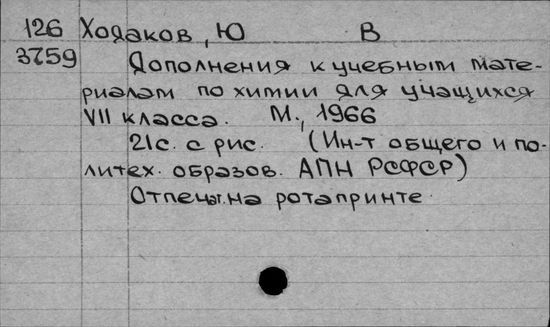 126 Ходаков, Ю В
3759 Дополнения к учебным мате-
риалам по химии для учащихся
VII класса. М., 1966
21с. с рис. (Ин-т общего и по-
литех. образов. АПН РСФСР)
Отпечат. на ротапринте